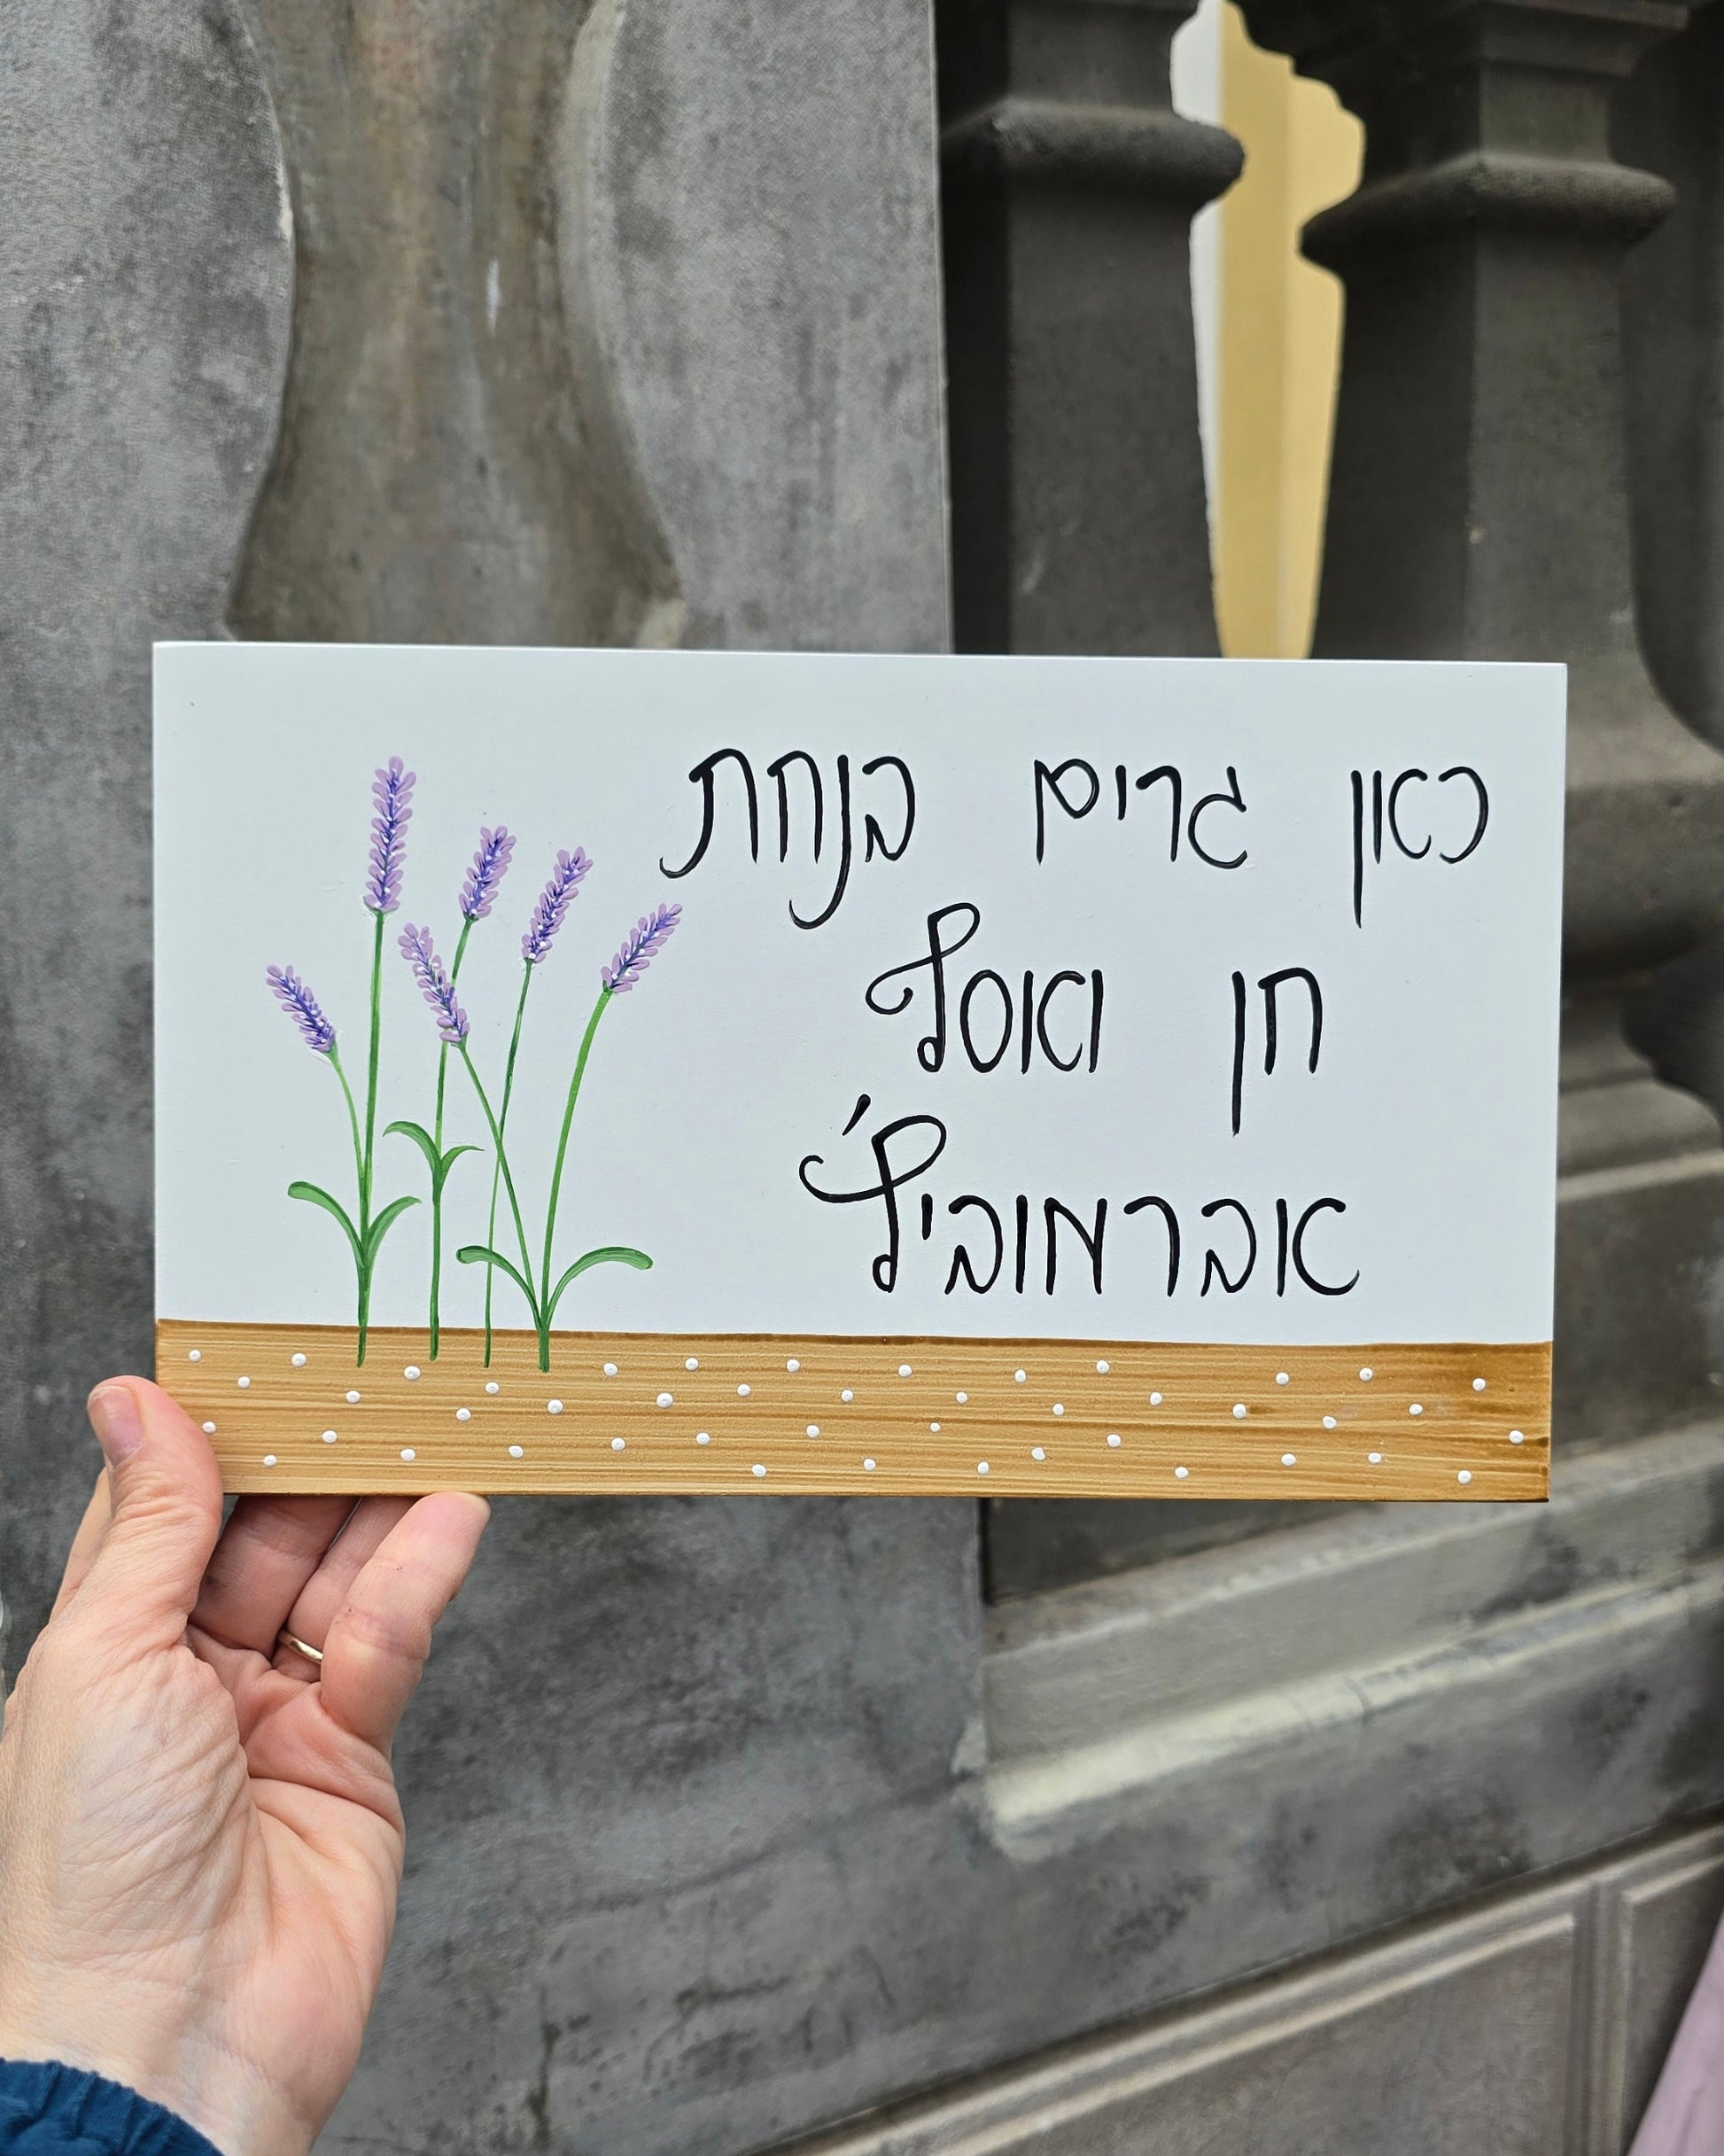 כאן גרים בנחת
חן ואסף
אברמוביץ'